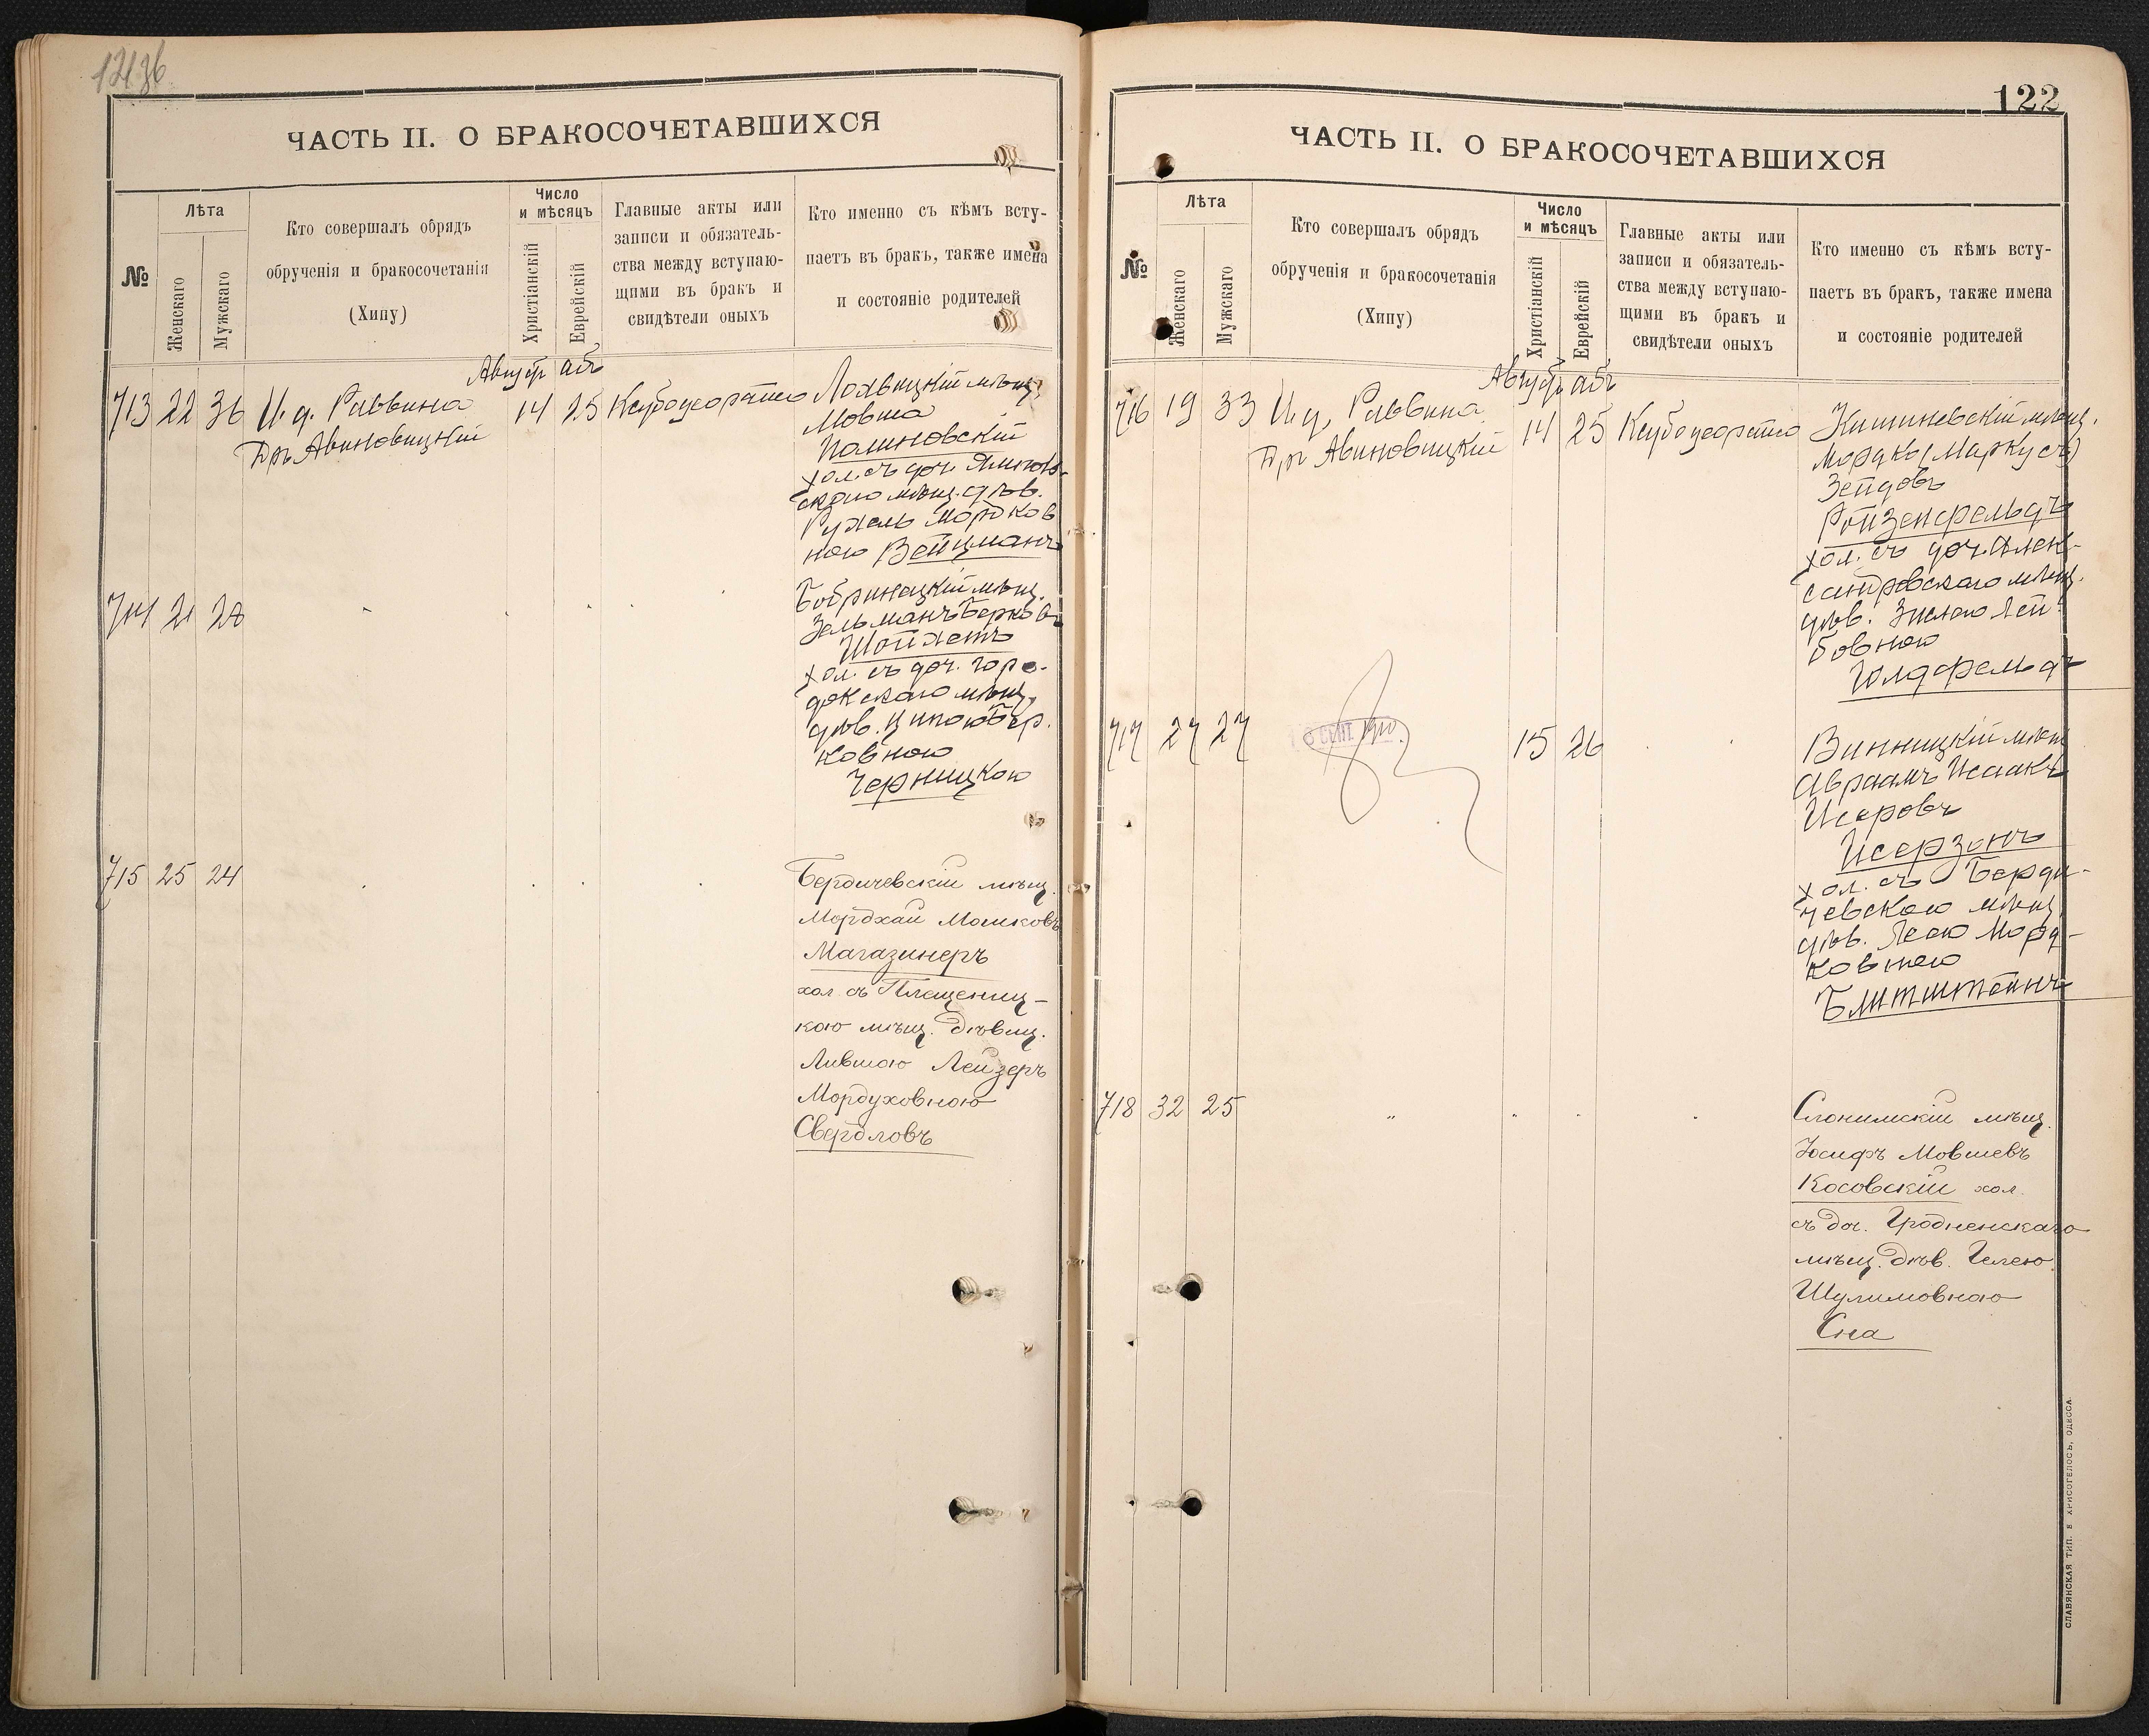 12136
ЧАСТЬ II. О БРАКОСОЧЕТАВШИХСЯ
№
Лѣта
Женскаго
Мужскаго
Кто совершалъ обрядъ
обрученія и бракосочетанія
(Хипу)
Число
и мѣсяцъ
Христіанскій
Еврейскій
Главные акты или
записи и обязатель-
ства между вступаю-
щими въ бракъ и
свидѣтели оныхъ
Кто именно съ кѣмъ всту-
паетъ въ бракъ, также имена
и состояніе родителей
Август аб
713 22 36 И. д. Раввина 14 25
Др Авиновицкій
Лохвицкій мѣщ.
Мовша
Полиновскій
хол. съ доч.
мѣщ. дѣв.
Рухель Мордков
ною Вейцманъ
714 21 28
Бобринецкій мѣщ.
Зельманъ Берков
Шойхетъ
хол. съ доч. горо-
докскаго мѣщ.
дѣв. Ципою Бер.
ковною
Черницкою
715 25 24
Бердичевскій мѣщ.
Мордхай Мошковъ
Магазинеръ
хол съ Плещениц-
кою мѣщ. Дѣвиц.
Лившою Лейзеръ
Мордуховною
Свердловъ
122
ЧАСТЬ II. О БРАКОСОЧЕТАВШИХСЯ
№
Лѣта
Женскаго
Мужскаго
Кто совершалъ обрядъ
обрученія и бракосочетанія
(Хипу)
Число
и мѣсяцъ
Христіанскій
Еврейскій
Главные акты или
записи и обязатель-
ства между вступаю-
щими въ бракъ и
свидѣтели оныхъ
Кто именно съ кѣмъ всту-
паетъ въ бракъ, также имена
и состояніе родителей
Август аб
716 19 33 И. д. Раввина 14 25
Др Авиновицкій
Кишиневскій мѣщ.
Мордко (Маркусъ)
Зейдовъ
Ройзенфельдъ
хол. съ доч. Алек-
сандровскаго мѣщ.
дѣв. Зислою Лей
бовною
Голдфельдъ
717 27 27 СЕНТ. 1910 15 26
Винницкій мѣщ
Авраамъ Исаакъ
Исеровъ
Исерзонъ
хол. съ Берди-
чевскою мѣщ.
дѣв. Леею Морд-
ковною
Блитштейнъ
718 32 25 "
Слонимскій мѣщ.
Іосифъ Мовшевъ
Косовскій хол.
съ доч. Гродненскаго
мѣщ. Дѣв. Гелею
Шулимовною
Сна
СЛАВЯНСКАЯ ТИП. Е. ХРИСОГЕЛОСЪ, ОДЕССА.